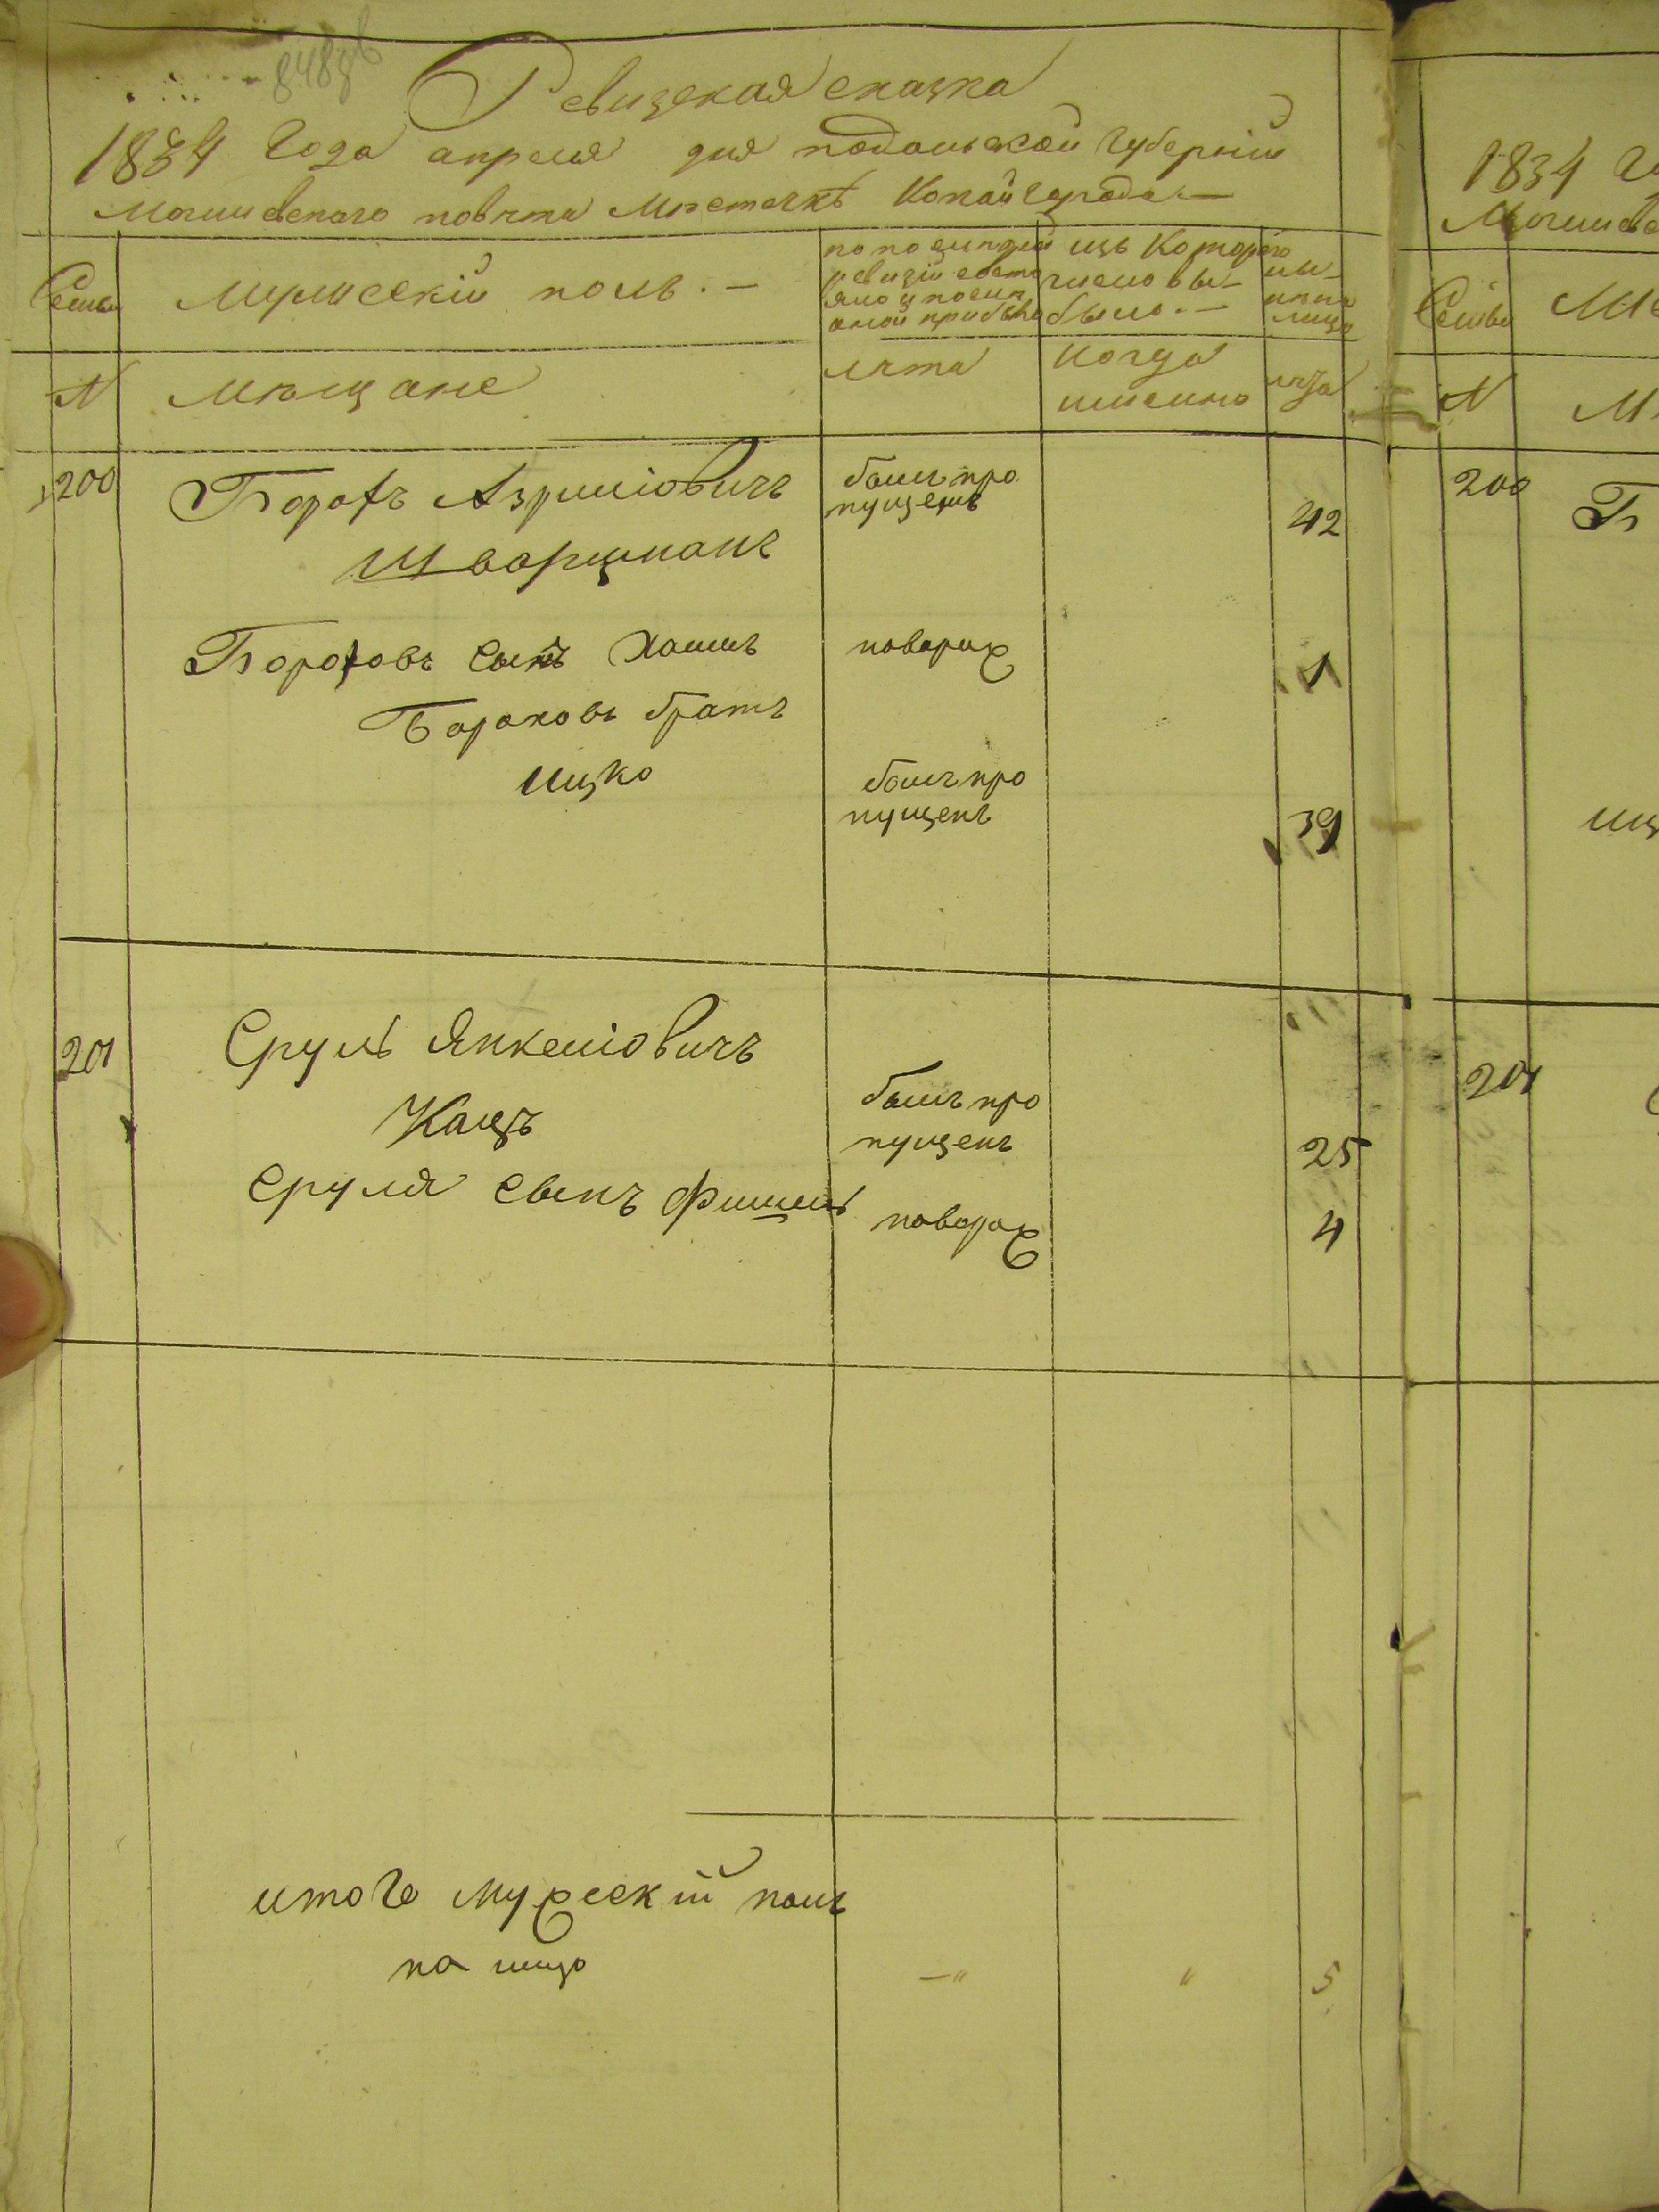 Ревизская сказка
1834 Года апреля дня подольской Губерніи
Могилевского повѣта Мѣстечкѣ Копайгорода.—
Семьи
Мужескій полъ.—
по последней
ревизіи состо
яло и после
оной прибыло
изъ которого
числа вы-
было.—
ны-
нѣ на
лицо
N
мѣщане
лѣта
когда
имянно
лѣта
200
Борохъ Азриліовичъ
былъ про
пущенъ
42
Шварцманъ
Бороховъ сынъ Хаимъ
поворож
1
Бороховъ братъ
Ицко
былъ про
пущенъ
39
201
Сруль Янкеліовичъ
Кацъ
былъ про
пущенъ
25
Сруля сынъ Фишель
поворож
4
итого мужескій полъ
на лицо
—"
"
5
1834
Могилев
Семьи
N
200
Б
Иц
201